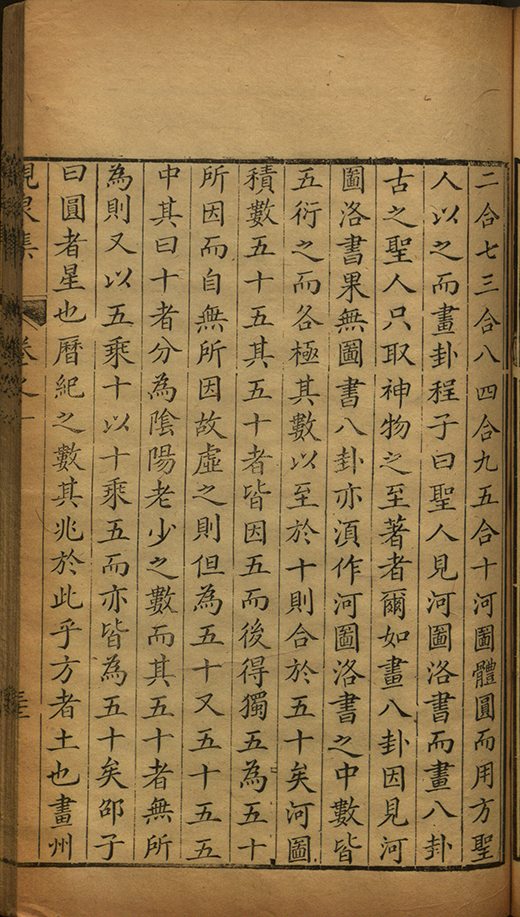 二合七三合八四合九五合十河圖體圓而用方聖
人以之而畫卦程子曰聖人見河圖洛書而畫八卦
古之聖人只取神物之至著者爾如畫八卦因見河
圖洛書果無圖書八卦亦湏作河圖洛書之中數皆
五衍之而各極其數以至於十則合於五十矣河圖
積數五十五其五十者皆因五而後得獨五為五十
所因而自無所因故虛之則但為五十又五十五五
中其曰十者分為陰陽老少之數而其五十者無所
為則又以五乘十以十乘五而亦皆為五十矣邵子
曰圓者星也曆紀之數其兆於此乎方者土也畫州
集 卷之一